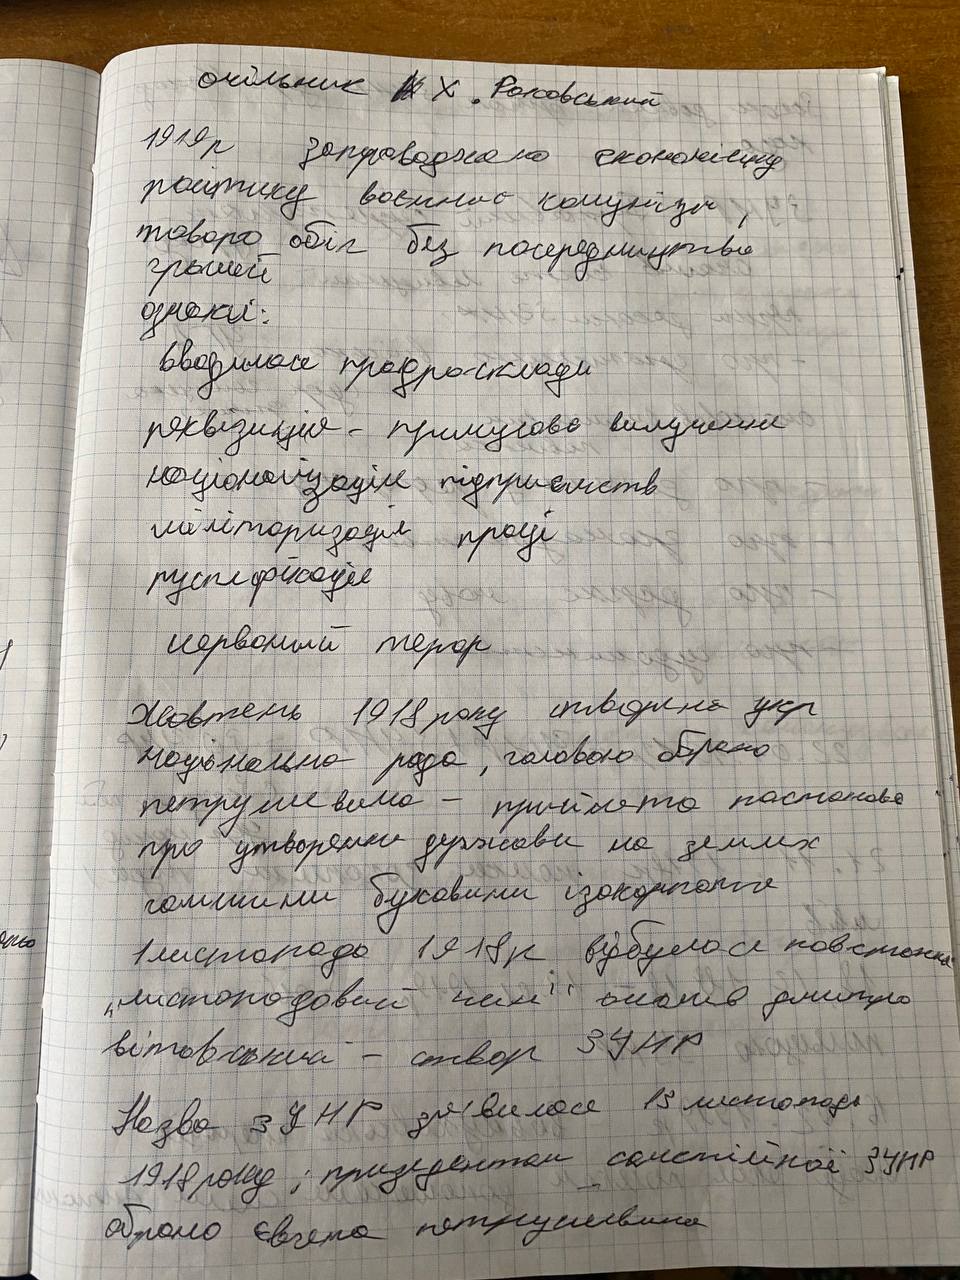 очільник Х. Раковський
1919р запроваджено економічну
політику воєнного комунізму,
товаро обіг без посередництва
грошей
ознаки:
вводилася продро-склади
реквізиція - примусове вилучення
націоналізація підприємств
мілітаризація праці
русифікація
червоний терор
Жовтень 1918 року створена укр
національна рада, головою обрано
петрушевича - прийнята постанова
про утворення держави на землях
галичини буковини і закарпаття
1 листопада 1918р відбулася повстання
"листопадовий чин" очолив дмитро
вітовський - створ ЗУНР
Назва ЗУНР з'явилася 13 листопада
1918 року; президентом самостійної ЗУНР
обрано євгена петрушевича